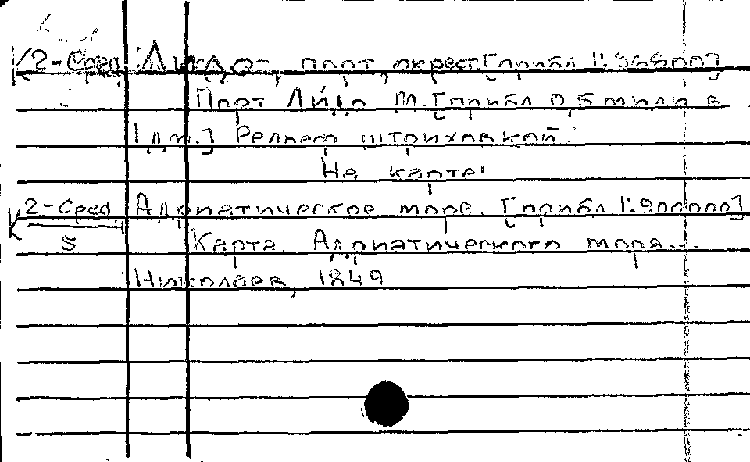 К2-Сред Лидо, порт, окрест. [прибл 1:36800]
Порт Лидо М. [прибл 0,5 мили в
1 дм.] Рельеф штриховкой.
На карте:
К2-Сред Адриатическое море. [прибл 1:900000]
5 Карта Адриатического моря...
Николаев, 1849